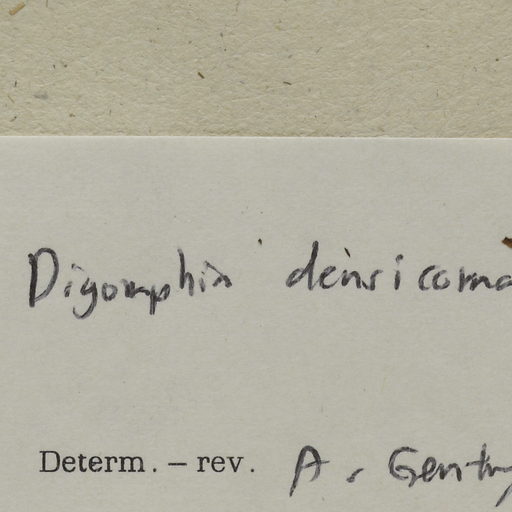 Digomphia densicoma
Determ. – rev. A. Gentry